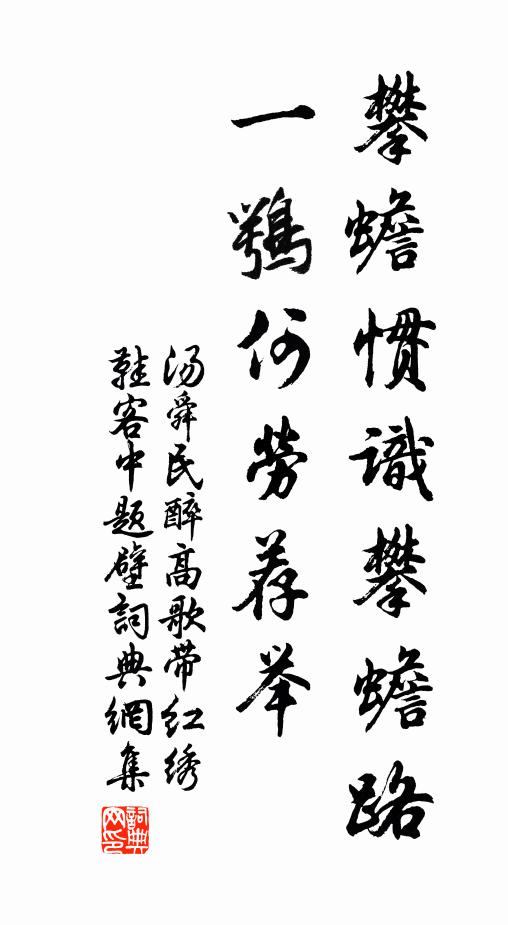 攀蟾惯識攀蟾路
一鶚何勞荐举
汤舜民醉高歌带红绣
鞋客中题壁詞典網集
詞典网印